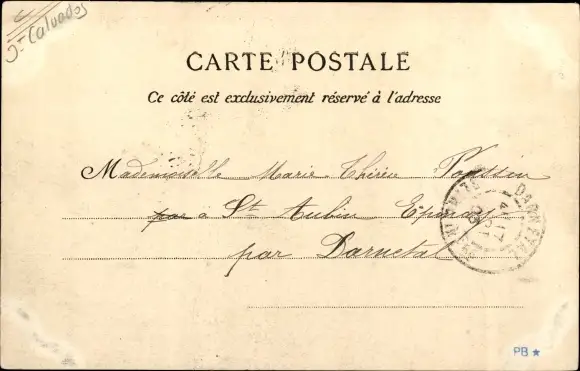 Calvados
CARTE POSTALE
Ce côté est exclusivement réservé à l'adresse
Mademoiselle Marie-Thérèse Poussin
par à St Aubin Epinay
par Darnetal
DARNETAL
PB ★